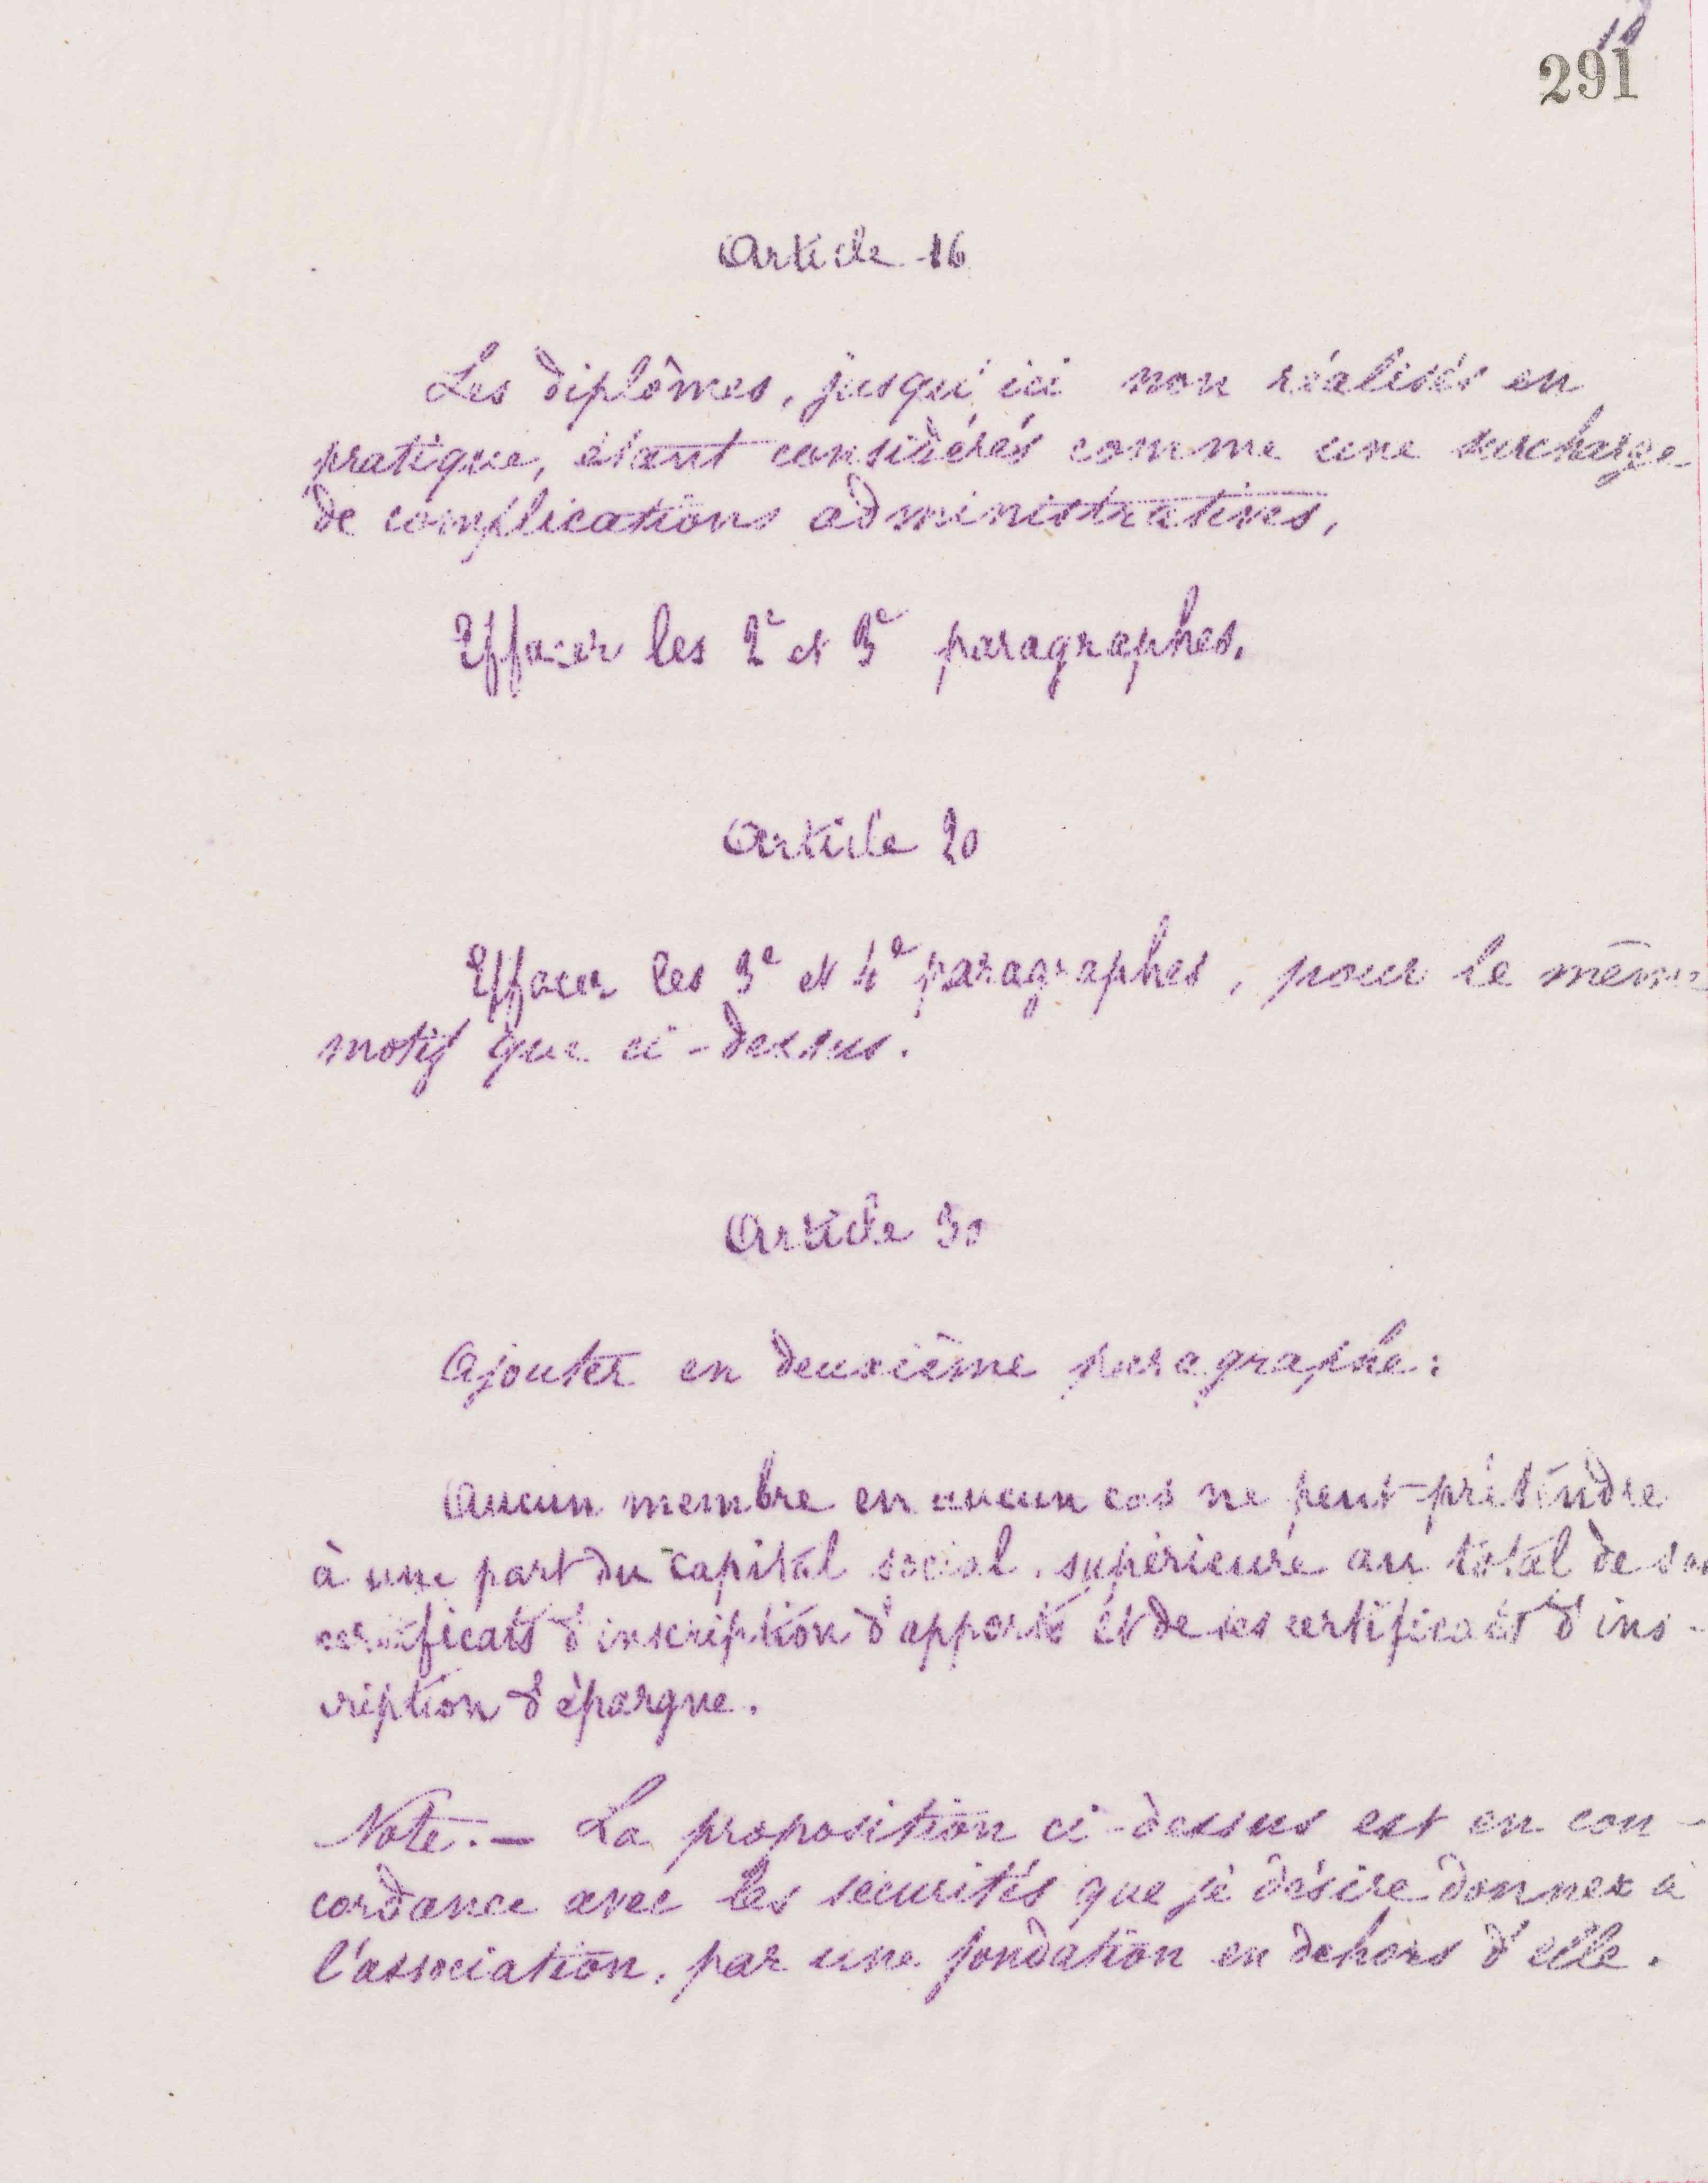 291
Article 16
Les diplômes, jusqu'ici non réalisés en
pratique, étant considérés comme une surcharge
de complications administratives,
Effacer les 2e et 3e paragraphes.
Article 20
Effacer les 3e et 4e paragraphes, pour le même
motif que ci-dessus.
Article 30
Ajouter en deuxième paragraphe:
Aucun membre en aucun cas ne peut prétendre
à une part du capital social, supérieure au total de
certificats d'inscription d'apports et de ses certificats d'ins-
cription d'épargne.
Note. — La proposition ci-dessus est en con-
cordance avec les sécurités que je désire donner à
l'association, par une fondation en dehors d'elle.